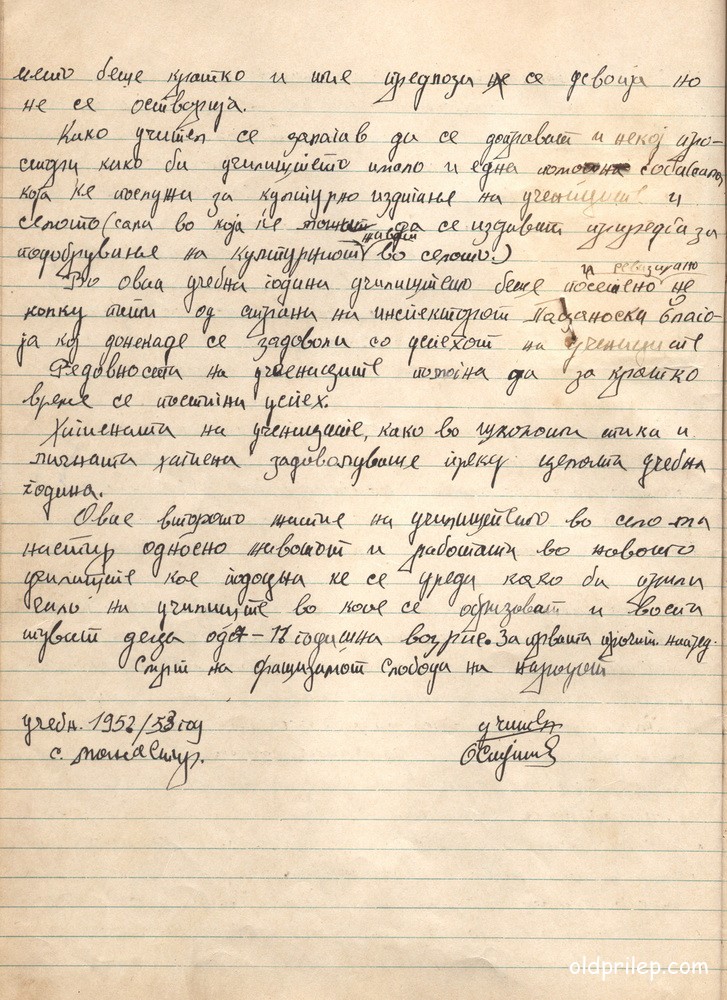 беше кратко и предлози се усвоија но
не се остварија.
Како учител се залагав да се дограват и некој про-
стории како би училиштето имало и една соба (сала)
која ќе послужи за културно издигање на учениците и
селото (сала во која ќе можат да се издават приредби за
подобрување на културниот живот во селото.)
Во оваа учебна година училиштето беше посетено и ревизирано не
колку пати од страна на инспекторот Паџаноски Благо-
ја кој донекаде се задоволи со успехот на учениците
Редовноста на учениците помогна да за кратко
време се постигни успех.
Хигиената на учениците, како во училишта така и
личната хигиена задоволуваше преку целата учебна
година.
Овае второто на училиштето во село Ма
настир односно животот и работата во новото
училиште кое подоцна ќе се уреди како би
на училиште во кое се образоват и воспи
туват деца од 7–11 годишна возрас. За првата прочит. напред.
Смрт на фашизамот Слобода на народот
учебн. 1952/53 год учител
с. Манастир.
oldprilep.com